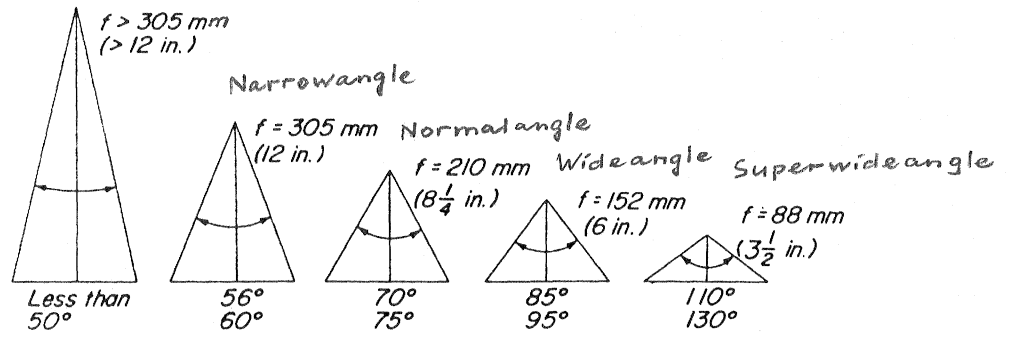 f > 305 mm
(> 12 in.)
Narrowangle
f = 305 mm
(12 in.)
Normalangle
f = 210 mm
(8 1/4 in.)
Wideangle
f = 152 mm
(6 in.)
Superwideangle
f = 88 mm
(3 1/2 in.)
Less than
50°
56°
60°
70°
75°
85°
95°
110°
130°